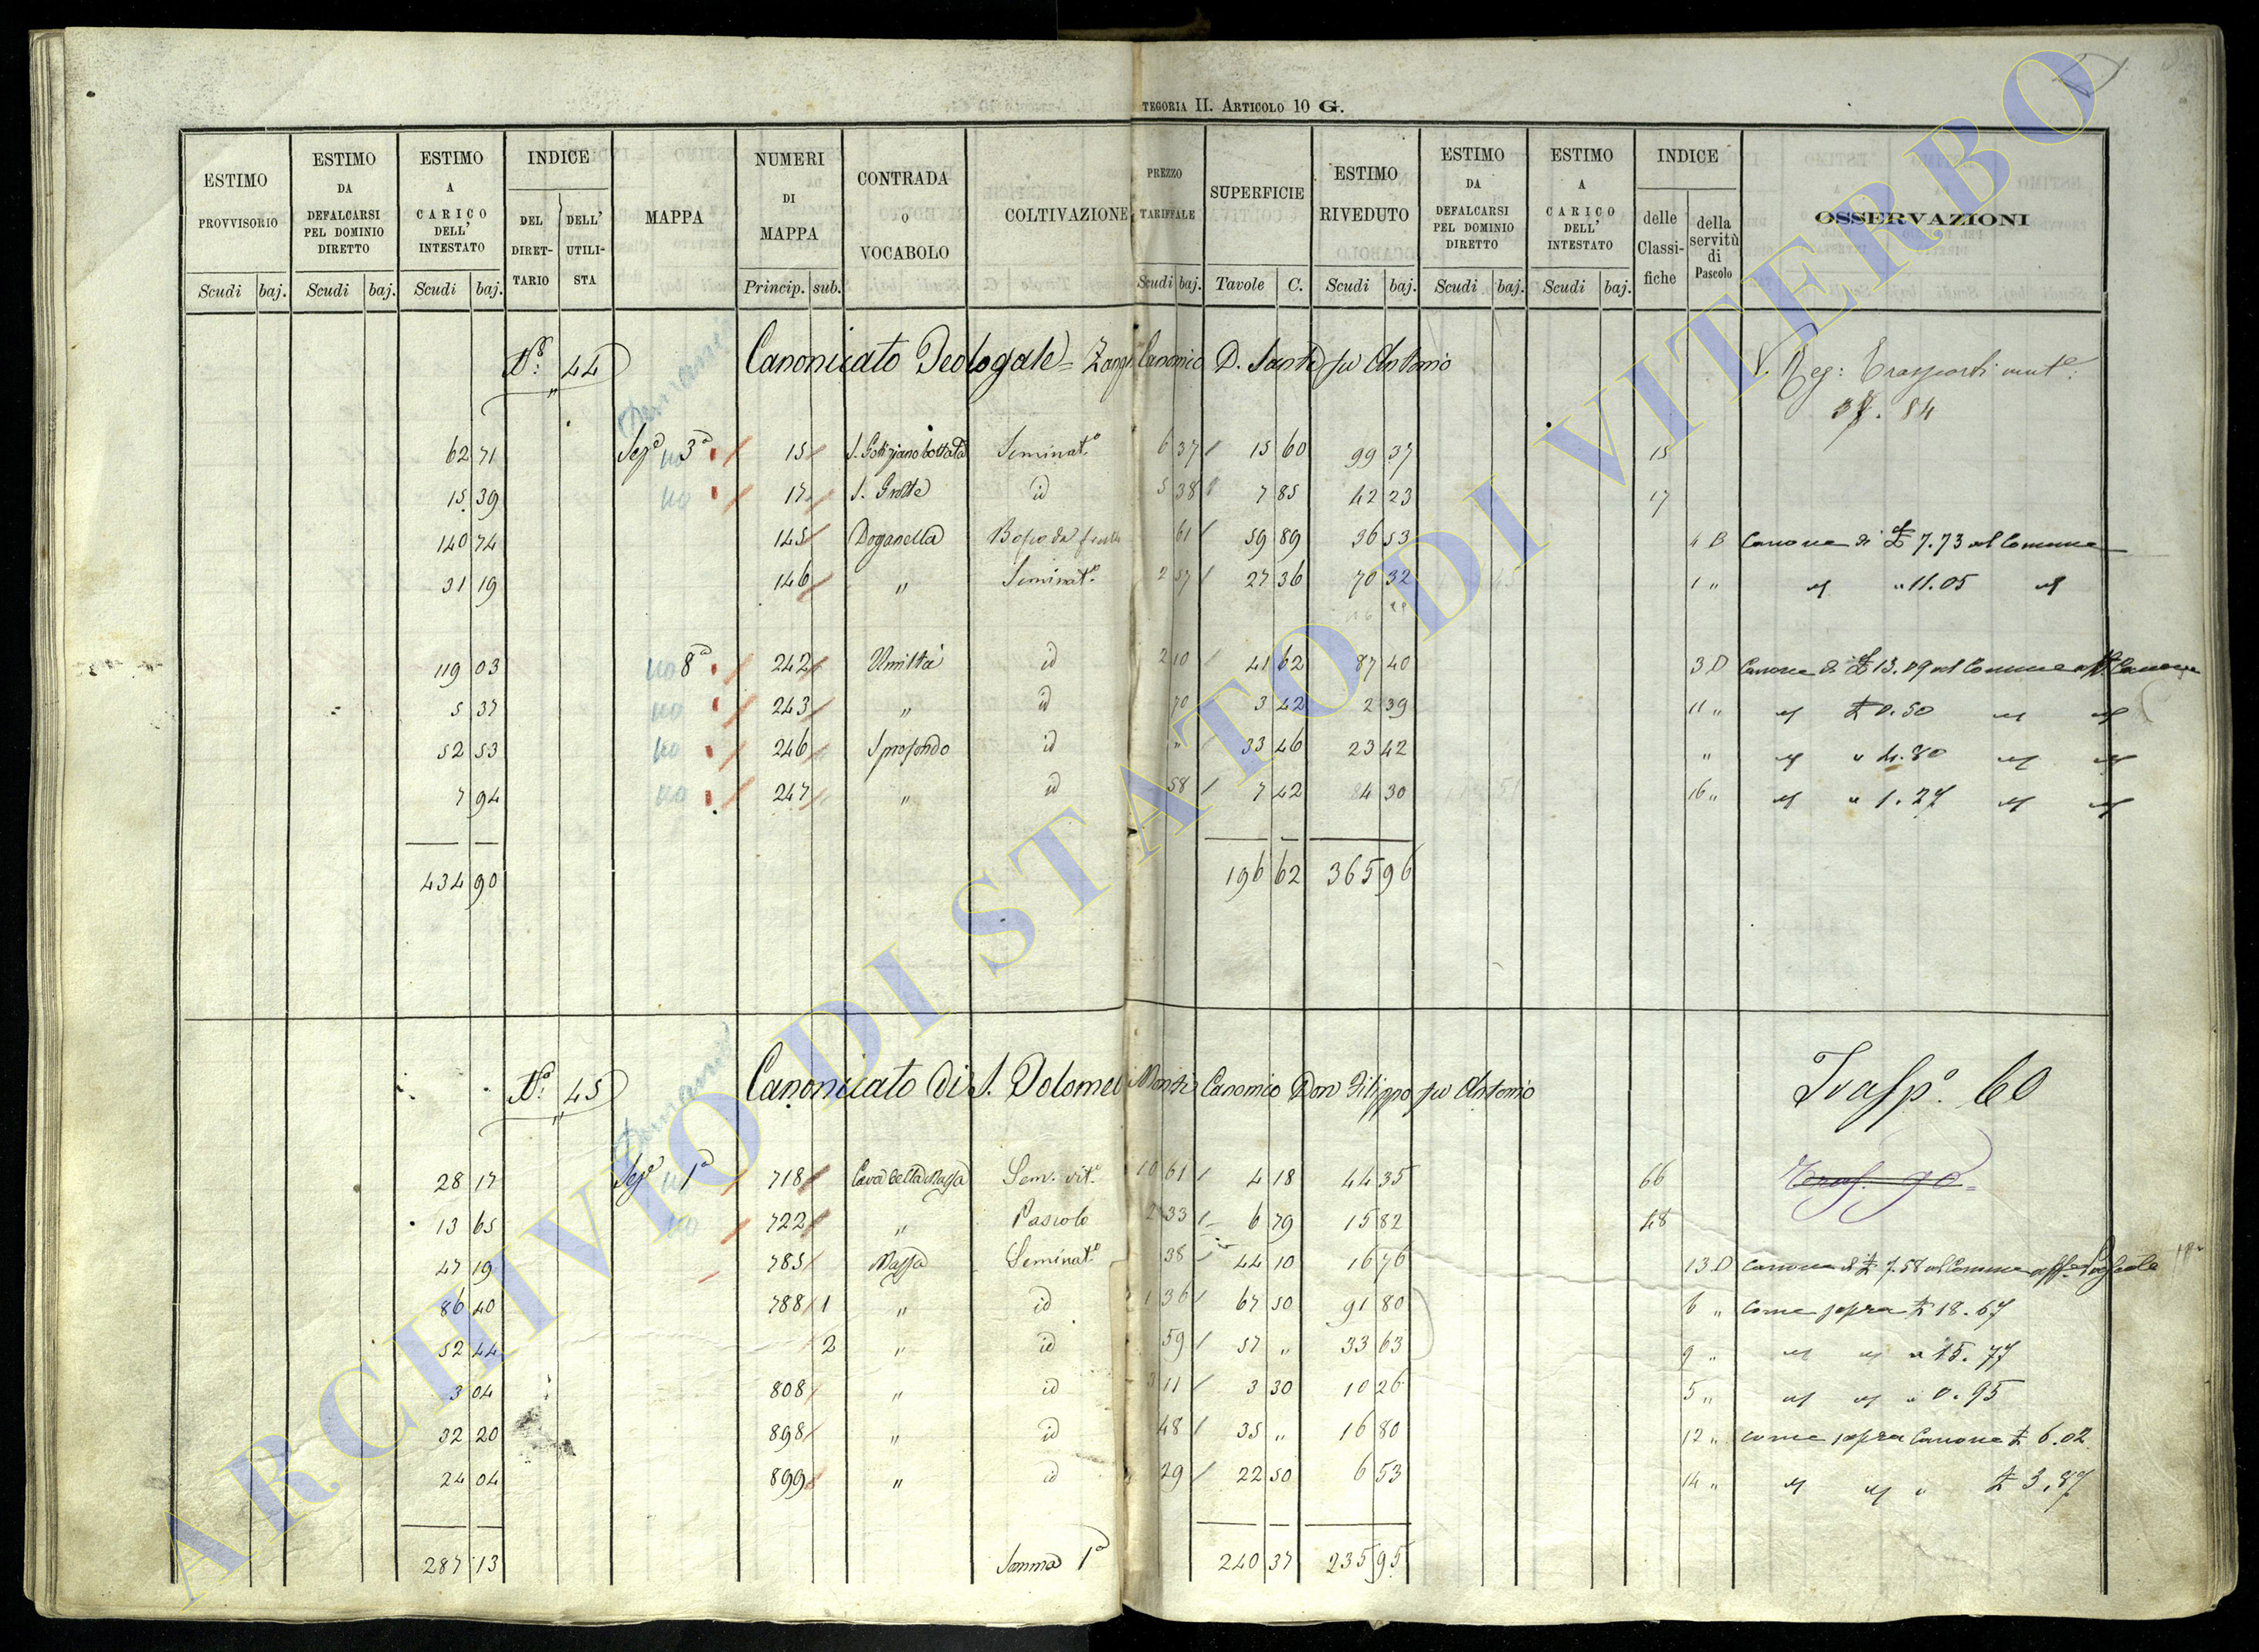 TEGORIA II. ARTICOLO 10 G.
ESTIMO PROVVISORIO | ESTIMO DA DEFALCARSI PEL DOMINIO DIRETTO | ESTIMO A CARICO DELL' INTESTATO | INDICE DEL DIRET-TARIO | DELL' UTILI-STA | MAPPA | NUMERI DI MAPPA | CONTRADA O VOCABOLO | COLTIVAZIONE | PREZZO TARIFFALE | SUPERFICIE | ESTIMO RIVEDUTO | ESTIMO DA DEFALCARSI PEL DOMINIO DIRETTO | ESTIMO A CARICO DELL' INTESTATO | INDICE delle Classi-fiche | della servitù di Pascolo | OSSERVAZIONI
Scudi baj. Scudi baj. Scudi baj. Princip. sub. Scudi baj. Tavole C. Scudi baj. Scudi baj. Scudi baj.
N.o 44 Canonicato Teologale = Canonico D. Sante fu Antonio
V. Reg: Trasporti
84
62 71 Sez.e 3a 15 Seminat.o 6 37 15 60 99 37 15
15 39 17 S. Grotte id 5 38 7 85 42 23 17
140 74 145 Doganella 61 59 89 36 53 B Canone di £ 7.73 al Comune
31 19 146 " Seminat.o 2 57 27 36 70 32 1 " " 11.05
119 03 8a 242 Umiltà id 2 10 41 62 87 40 3 D Canone di £ 13.09 al Comune
5 37 243 " id 70 3 42 2 39 11 " £ 0.50
52 53 246 Sprofondo id " 33 46 23 42 " " 4.80
7 94 247 " id 58 7 42 4 30 16 " " 1.27
434 90 196 62 365 96
N.o 45 Canonicato di S. Canonico Don Filippo fu Antonio
Trasp.o 60
28 17 Sez.e 1a 718 Cava della Massa Sem. vit.o 10 61 4 18 44 35 66
13 65 722 " Pascolo 2 33 6 79 15 82 48
47 19 785 Massa Seminat.o 38 44 10 16 76 13 D Canone di £ 7.58 al Comune
86 40 788 1 " id 1 36 67 50 91 80 6 " Come sopra £ 18.67
52 44 2 " id 59 57 " 33 63 9 " " 15.77
3 04 808 " id 3 11 3 30 10 26 5 " " 0.95
32 20 898 " id 48 35 " 16 80 12 " come sopra Canone £ 6.02
24 04 899 " id 29 22 50 6 53 14 " £ 3.87
287 13 Somma 1a 240 37 235 95
ARCHIVIO DI STATO DI VITERBO